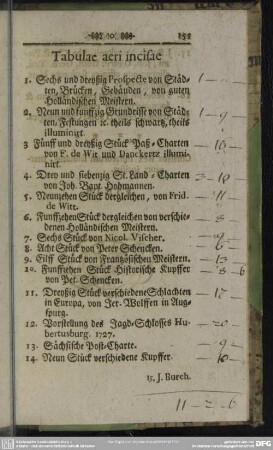 -ꝏꝏ )o( ꝏꝏ- 151
Tabulae aeri incisae
1. Sechs und dreyßig Prospecte von Städ-
ten, Brücken, Gebäuden, von guten
Holländischen Meistern. 1 — —
2. Neun und funffzig Grundrisse von Städ-
ten, Festungen ꝛc. theils schwartz, theils
illuminirt. 1 — 9 —
3 Fünff und dreyßig Stück Paß-Charten
von F. de Wit und Danckertz illumi-
nirt. — 16 —
4. Drey und siebenzig St. Land-Charten
von Joh. Bapt. Hohmannen. 3 — 18 —
5. Neunzehen Stück dergleichen, von Frid.
de Witt. — 11 —
6. FunffzehenStück dergleichen von verschie-
denen Holländischen Meistern. — 8 —
7. Sechs Stück von Nicol. Vischer.
8. Acht Stück von Peter Schencken. — 6 —
9. Eilff Stück von Frantzösischen Meistern. — 13 —
10. Funffzehen Stück Historische Kupffer
von Pet. Schencken. — 8 — 6
11. Dreyßig Stück verschiedene Schlachten
in Europa, von Jer. Wolffen in Aug-
spurg. — 17 —
12. Vorstellung des Jagd-Schlosses Hu-
bertusburg. 1727. — 20 —
13. Sächsische Post-Charte. — 9 —
14. Neun Stück verschiedene Kupffer. — 10 —
15. J. Burch.
11 — 2 — 6